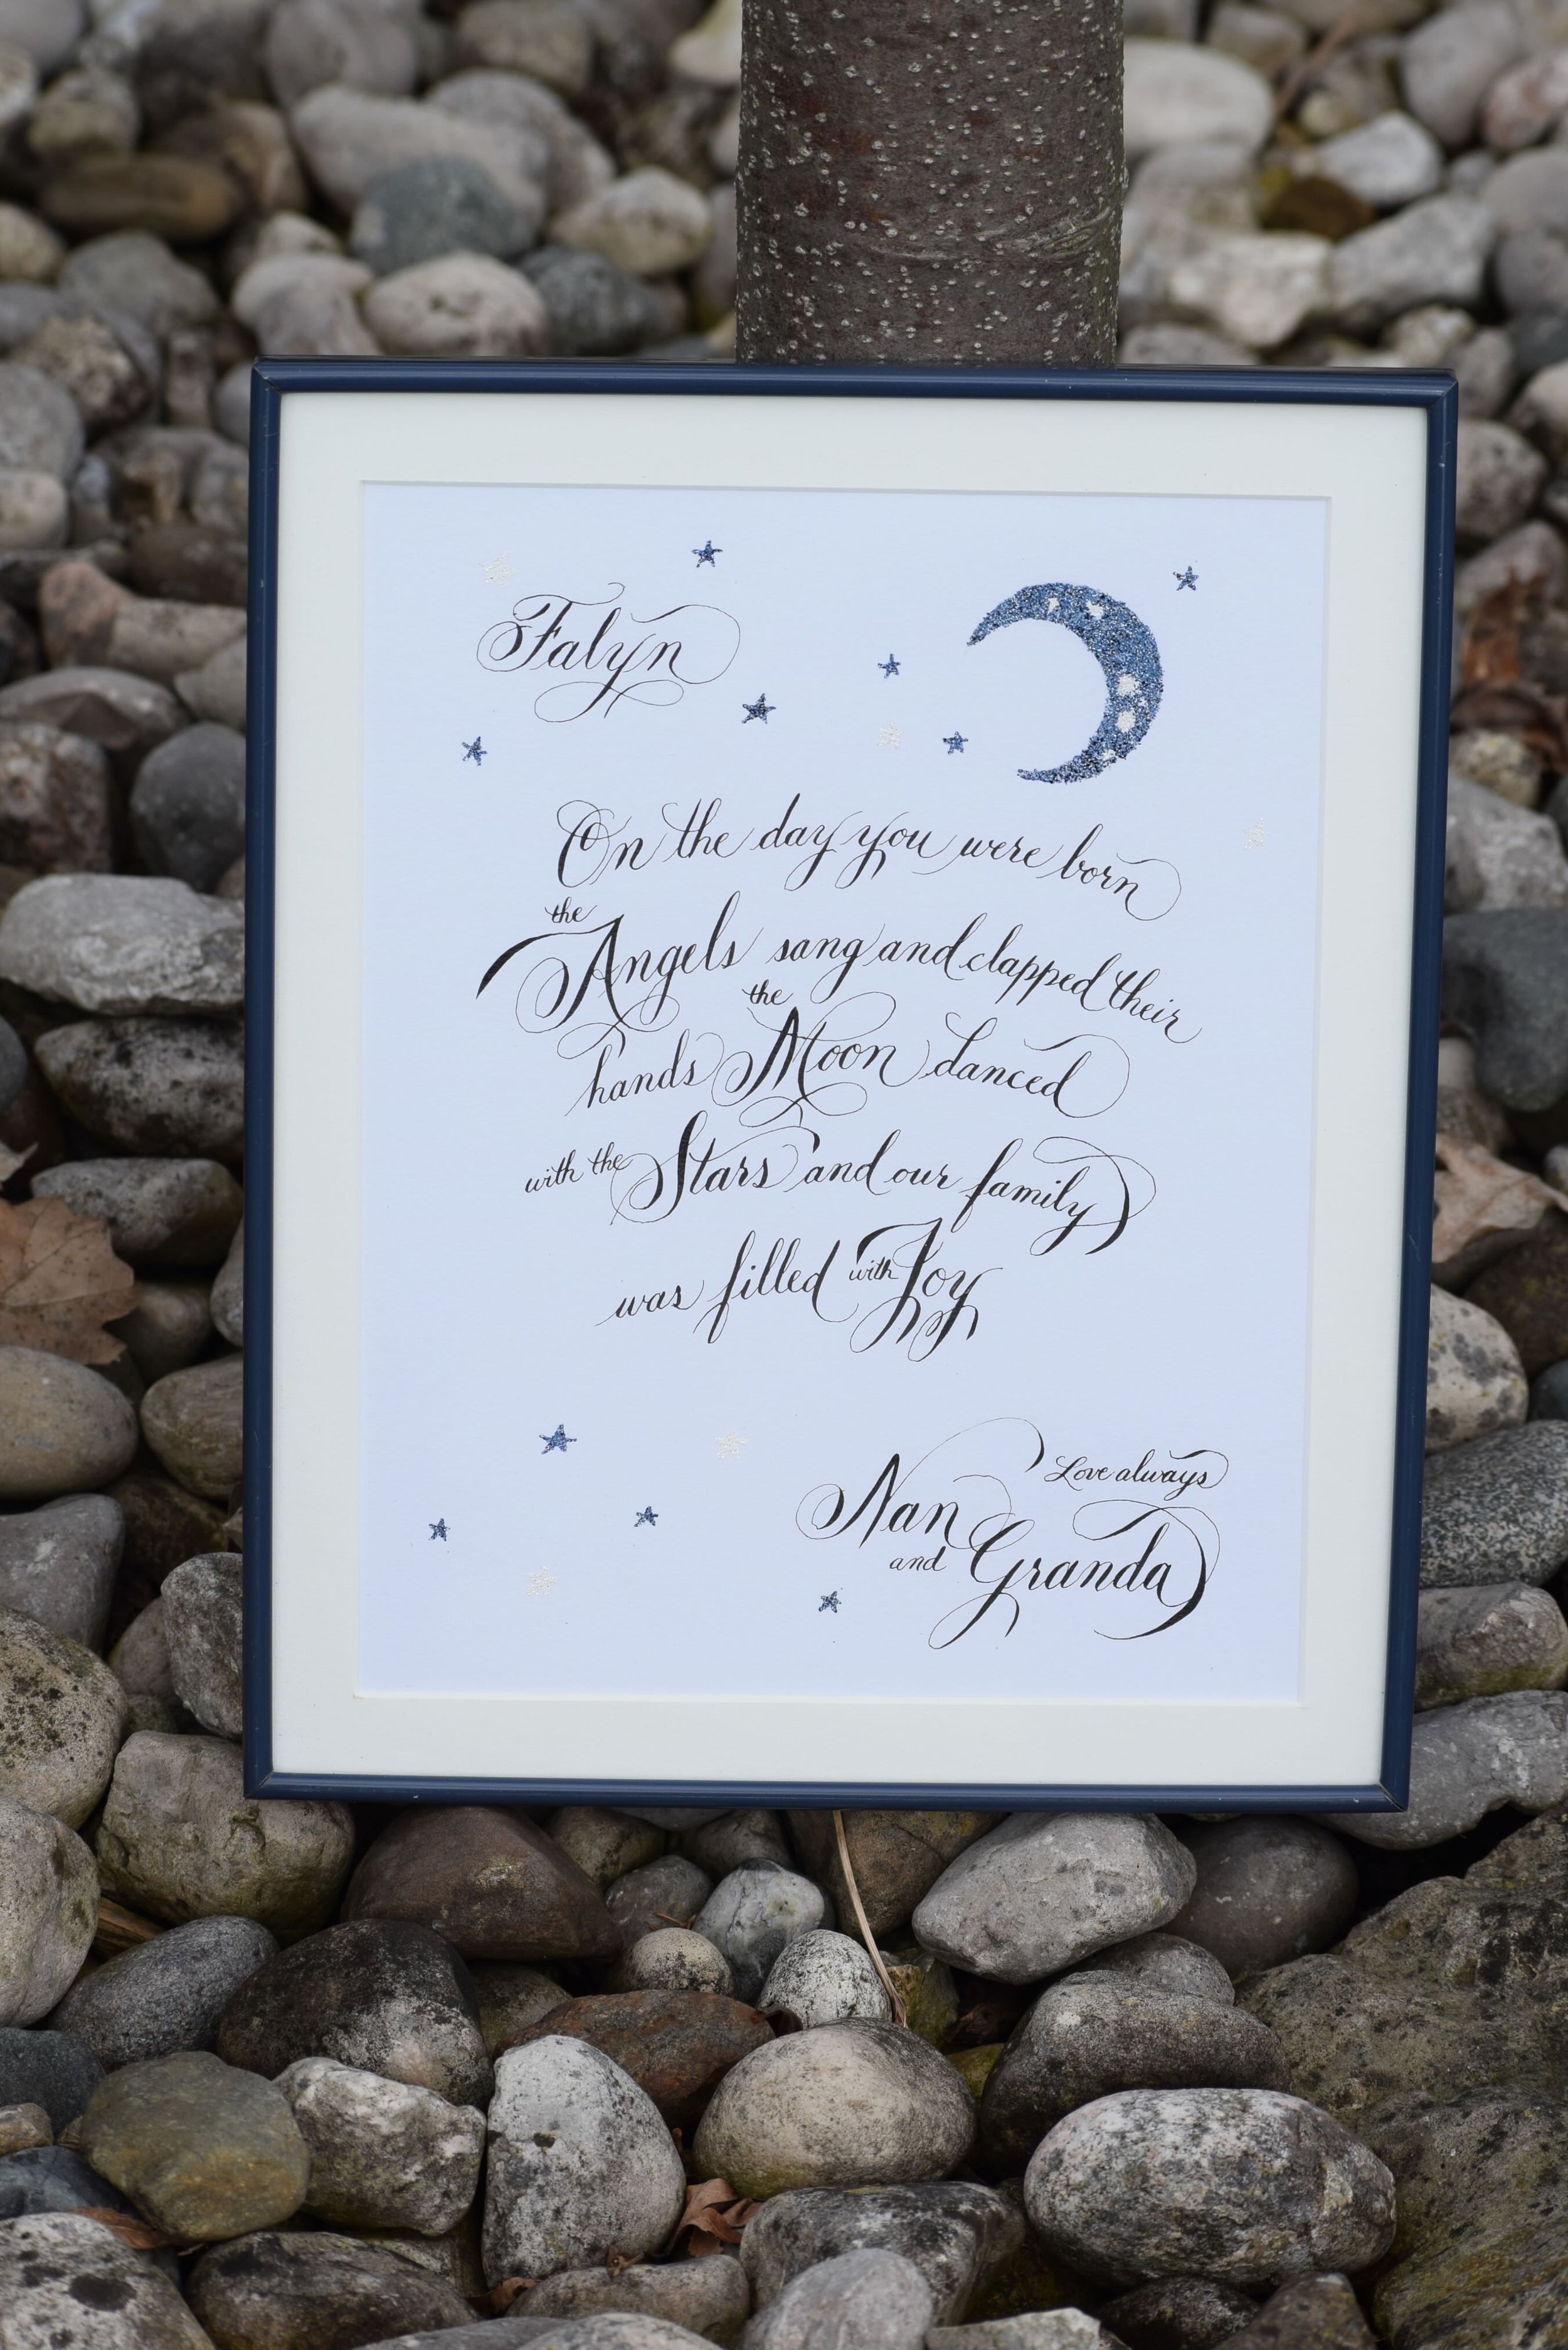 Falyn
On the day you were born
the Angels sang and clapped their
hands the Moon danced
with the Stars and our family
was filled with Joy
Love always
Nan
and Granda